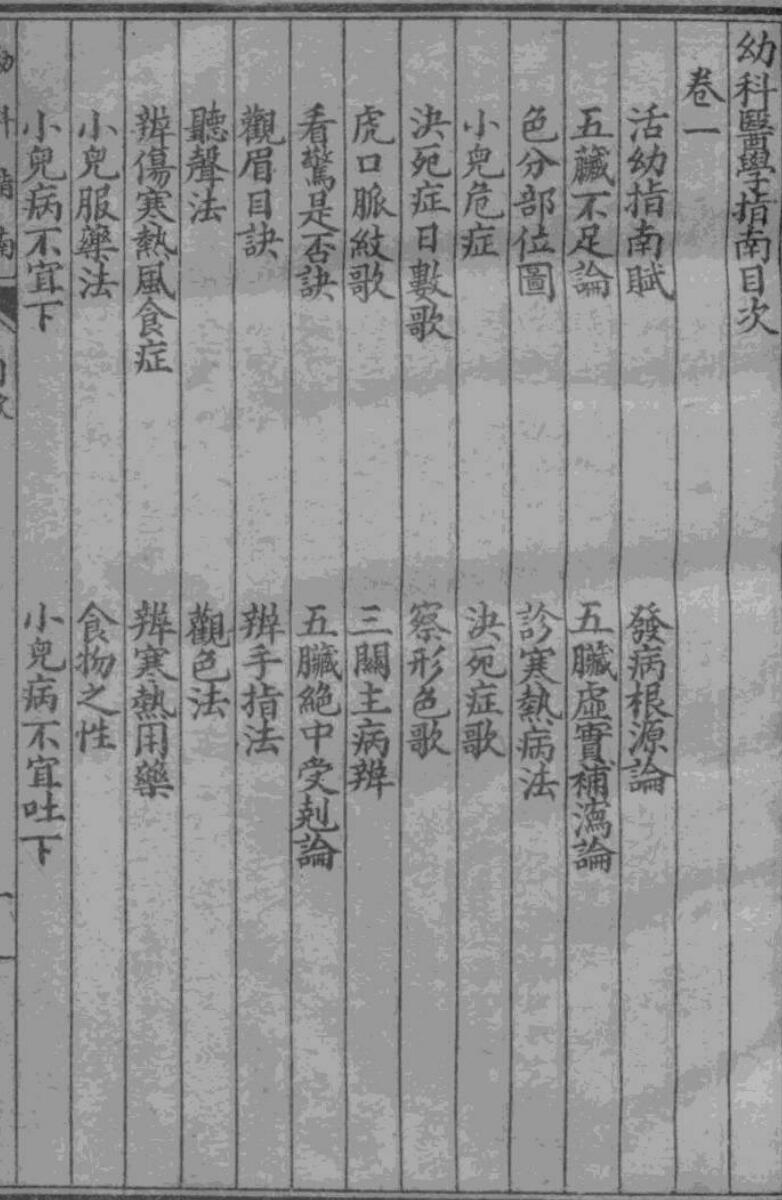 幼科醫學指南目次
卷一
活幼指南賦
發病根源論
五臟不足論
五臟虛實補瀉論
色分部位圖
診寒熱病法
小兒危症
決死症歌
決死症日數歌
察形色歌
虎口脈紋歌
三關主病辨
看驚是否訣
五臟絕中受剋論
觀眉目訣
辨手指法
聽聲法
觀色法
辨傷寒熱風食症
辨寒熱用藥
小兒服藥法
食物之性
小兒病不宜下
小兒病不宜吐下
幼科指南
目次
一